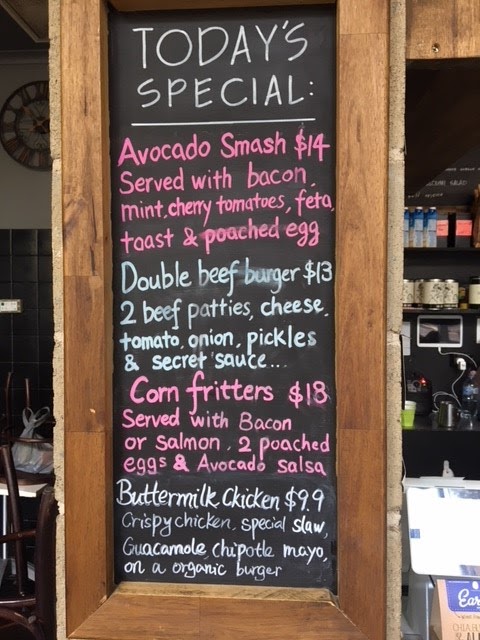 TODAY'S
SPECIAL:
Avocado Smash $14
Served with bacon,
mint, cherry tomatoes, feta,
toast & poached egg
Double beef burger $13
2 beef patties, cheese,
tomato, onion, pickles
& secret sauce...
Corn fritters $18
Served with Bacon
or salmon, 2 poached
eggs & Avocado salsa
Buttermilk Chicken $9.9
Crispy chicken, special slaw,
Guacamole, chipotle mayo,
on a organic burger
SALAD
Ear